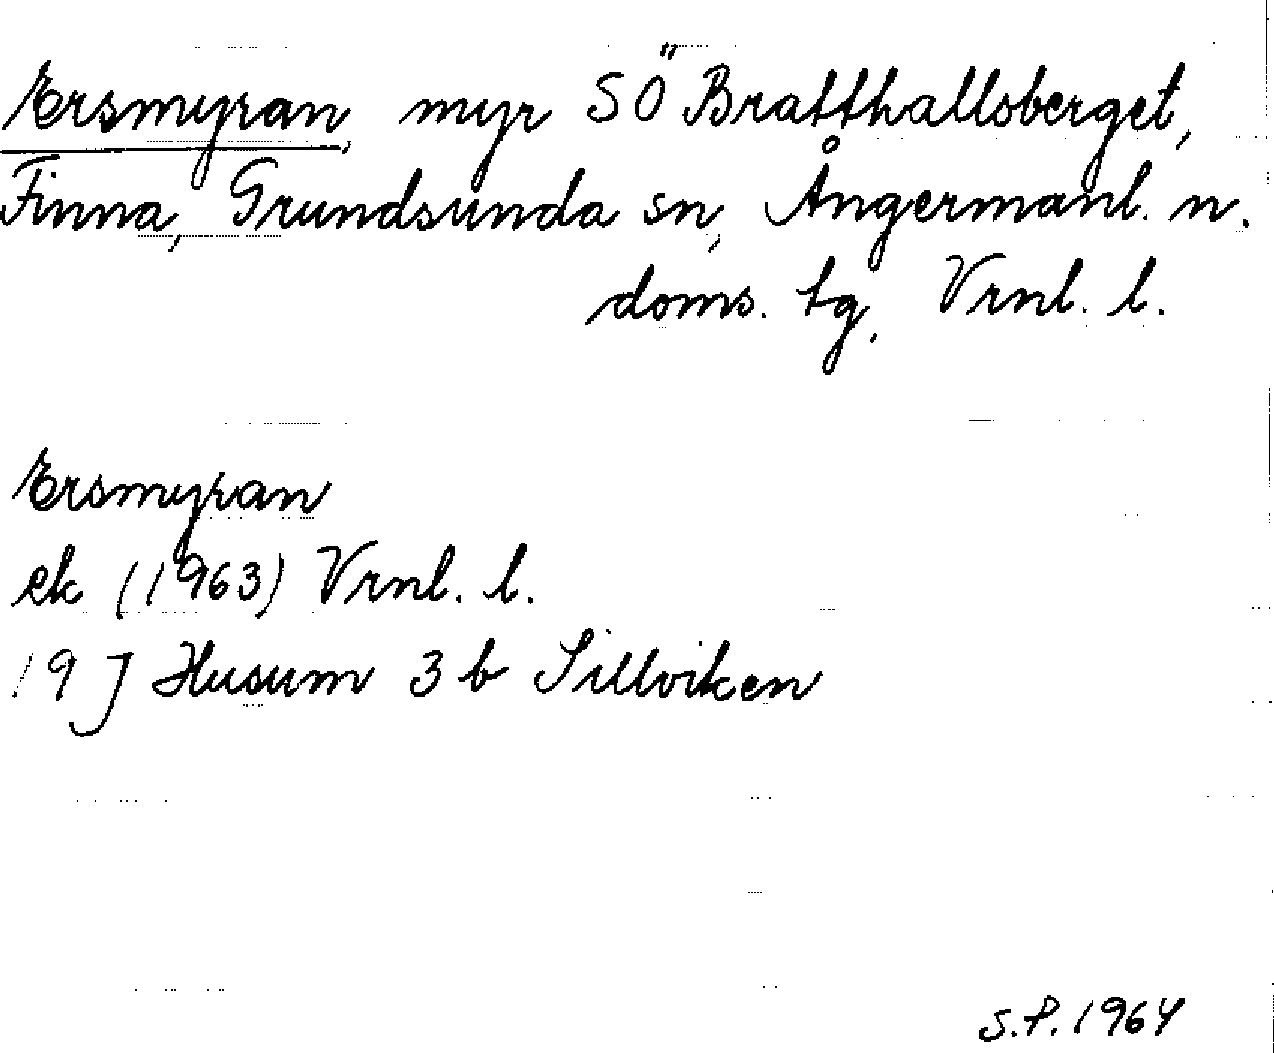 Ersmyran, myr SÖ Bratthallsberget,
Finna, Grundsunda sn, Ångermanl. n.
doms. tg, Vrnl. l.
Ersmyran
ek (1963) Vrnl. l.
19 J Husum 3 b Sillviken
S.P. 1964